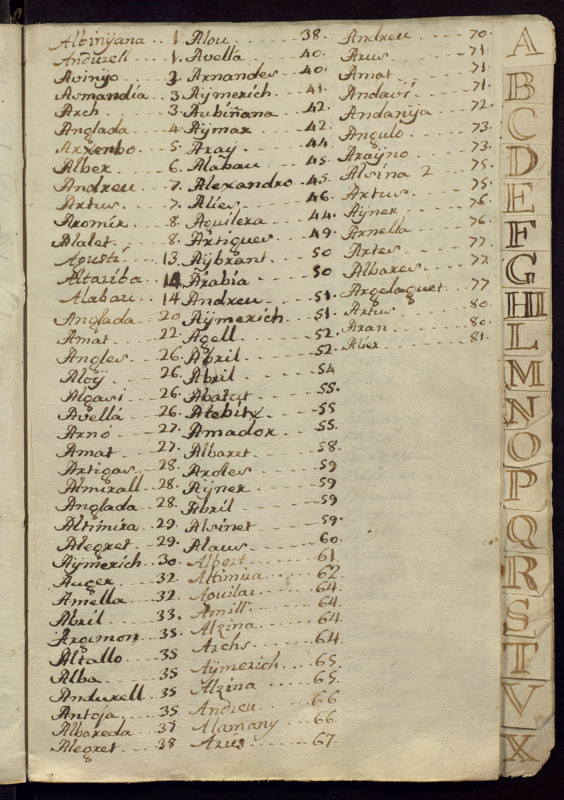 Albinÿana 1
Andurell 1
Avinÿo 2
Asmandia 3
Arch 3
Anglada 4
Arxenbo 5
Alber 6
Andreu 7
Artus 7
Aromír 8
Alalet 8
Agustí 13
Altariba 14
Alabau 14
Anglada 20
Amat 22
Angles 26
Aloÿ 26
Algasi 26
Avellá 26
Arnó 27
Amat 27
Artigas 28
Almirall 28
Anglada 28
Altimira 29
Alegret 29
Aÿmerich 30
Auger 32
Amella 32
Abril 33
Argimon 35
Altallo 35
Alba 35
Andurell 35
Antoja 35
Albareda 37
Alegret 38
Alou 38
Avella 40
Arnandes 40
Aÿmerich 41
Aubiñana 42
Aÿmar 42
Aray 44
Alabau 45
Alexandro 45
Alies 46
Aguilera 44
Artigues 49
Aÿbrant 50
Arabia 50
Andreu 51
Aÿmerich 51
Agell 52
Abril 52
Abril 54
Abatut 55
Alebitx 55
Amador 55
Albaret 58
Aroles 59
Aÿner 59
Abril 59
Alsinet 59
Alaus 60
Albert 61
Altimira 62
Aguilar 64
Amill 64
Alzina 64
Archs 64
Aÿmerich 65
Alzina 65
Andreu 66
Alamany 66
Arus 67
Andreu 70
Arus 71
Amat 71
Andavi 71
Andanÿa 72
Angulo 73
Araÿno 73
Alsina 2 75
Artus 75
Aÿner 76
Arnella 76
Artes 77
Albares 77
Argelaguet 77
Artus 80
Aran 80
Alier 81
A
B
C
D
E
F
G
H I
L
M
N
O
P
Q
R
S
T
V
X